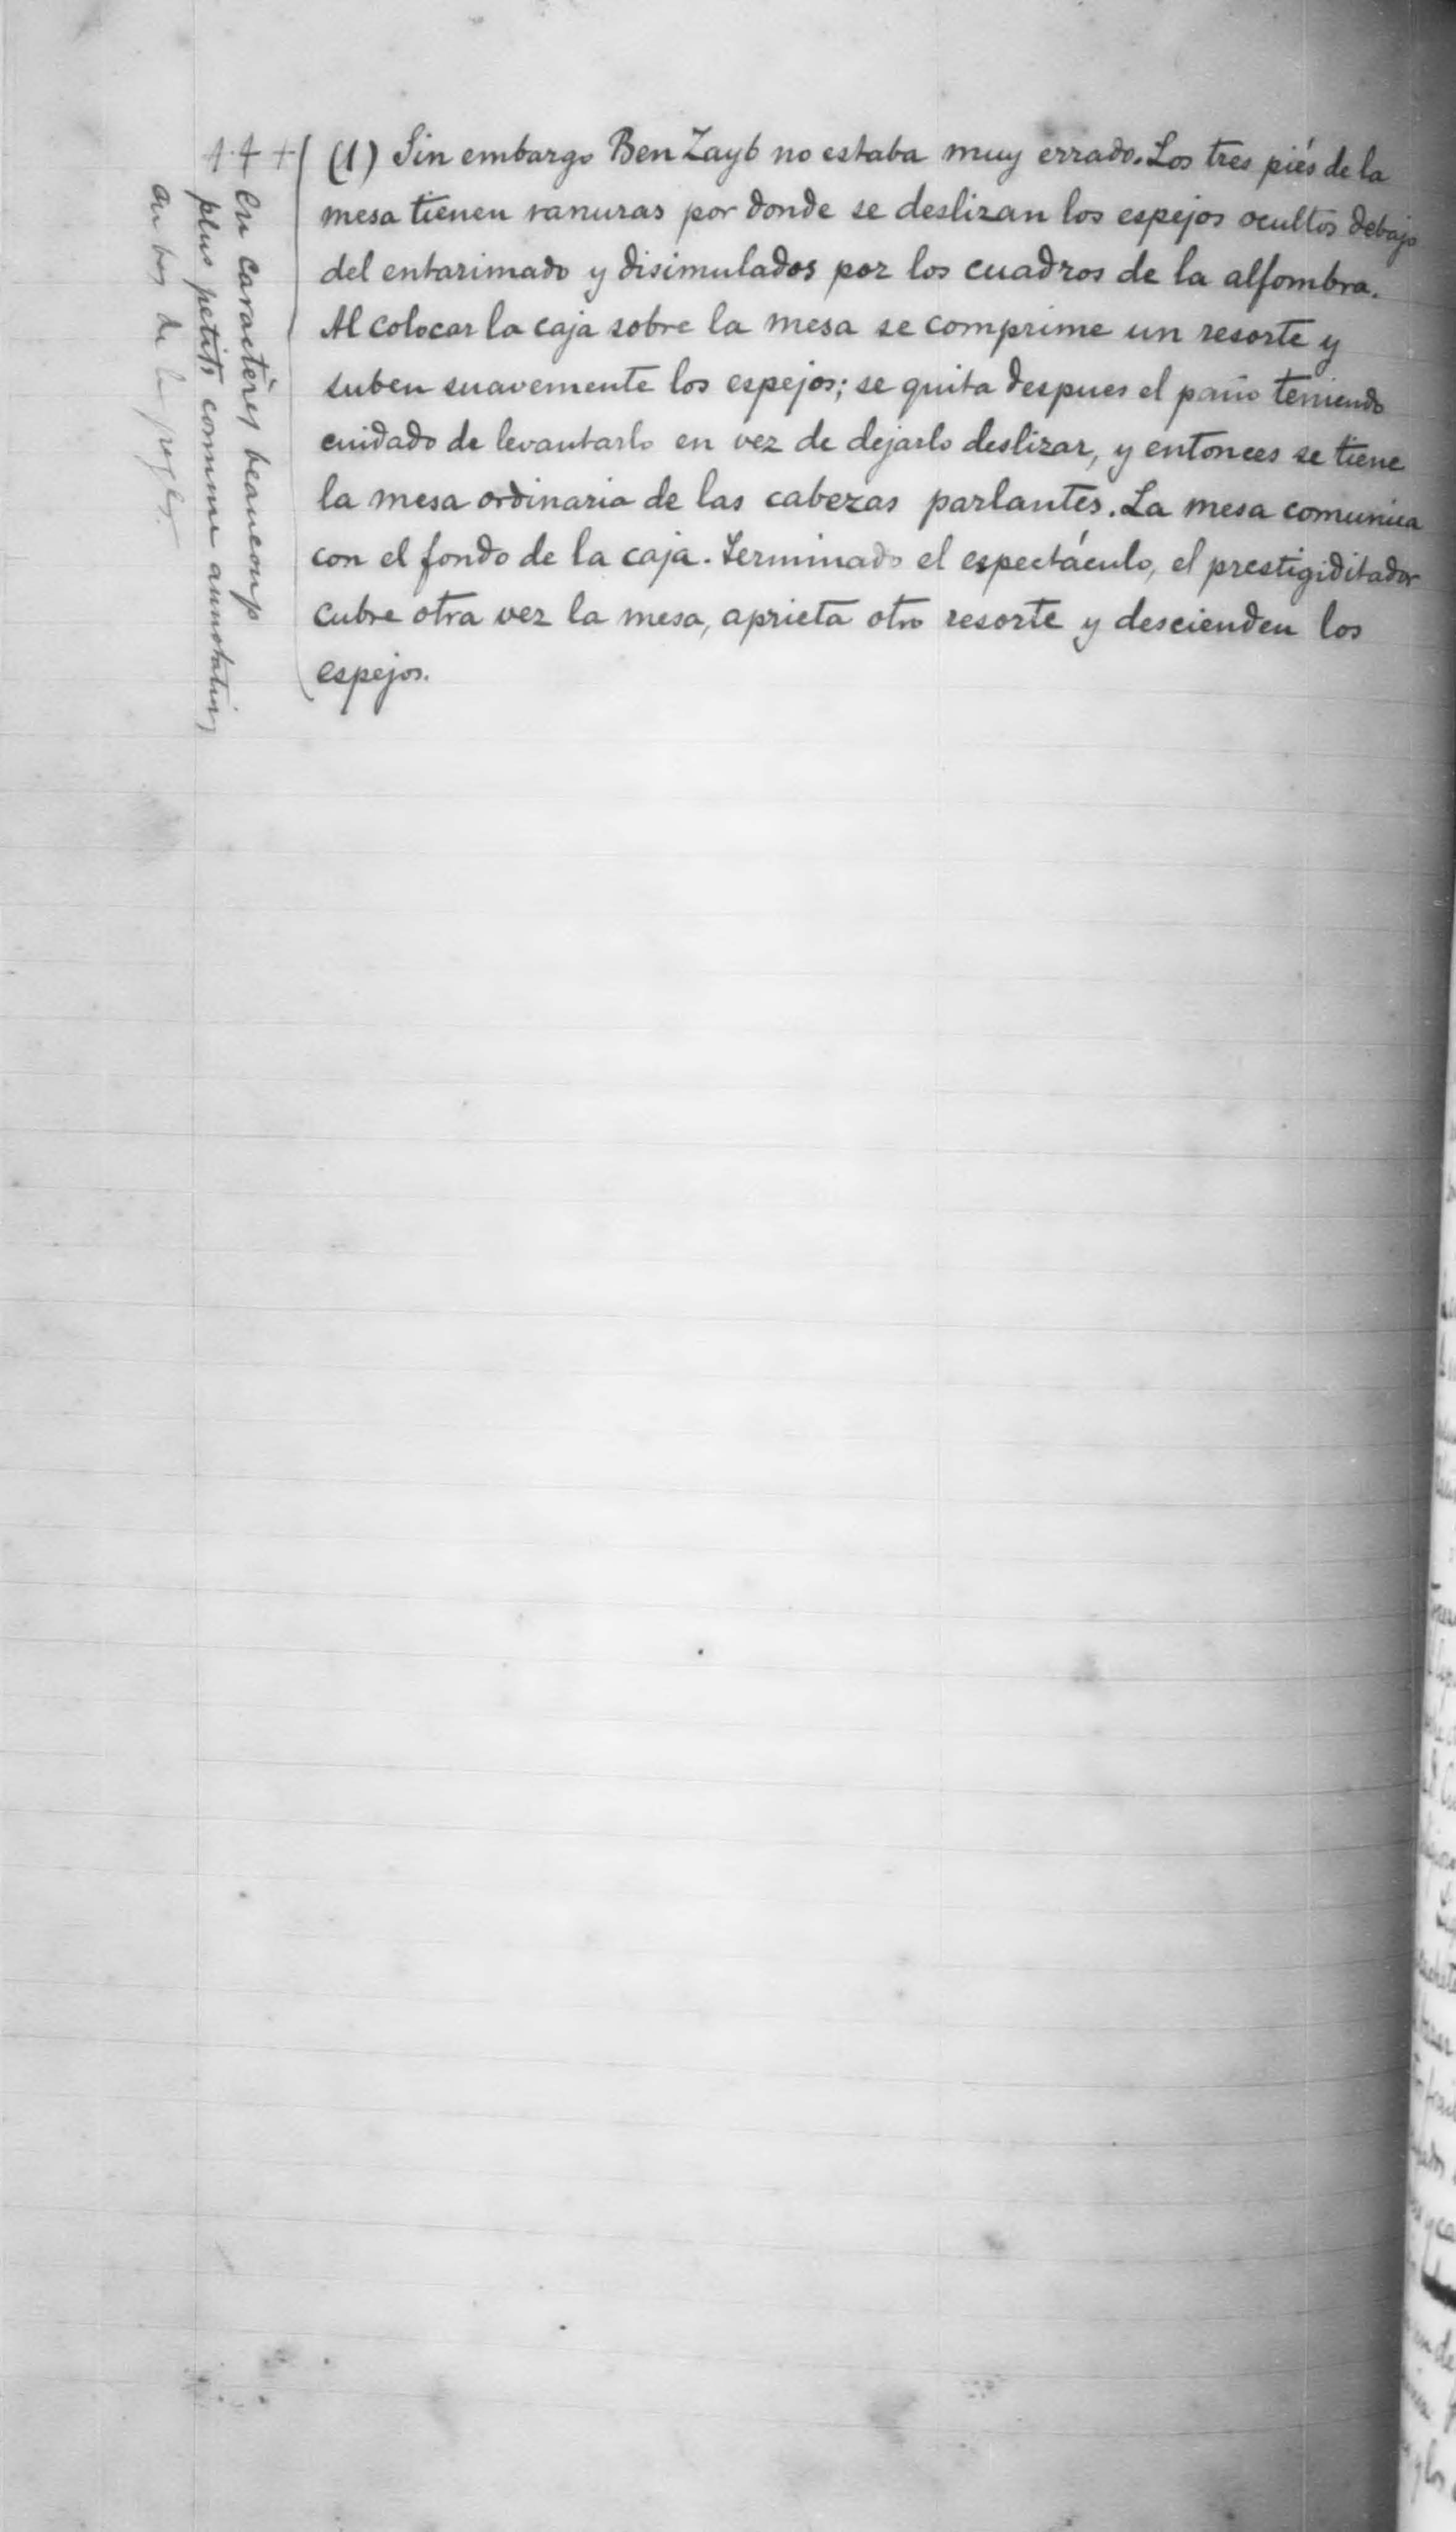 (1) Sin embargo Ben Zayb no estaba muy errado. Los tres piés de la
mesa tienen ranuras por donde se deslizan los espejos ocultos debajo
del entarimado y disimulados por los cuadros de la alfombra.
Al colocar la caja sobre la mesa se comprime un resorte y
suben suavemente los espejos; se quita despues el paño teniendo
cuidado de levantarlo en vez de dejarlo deslizar, y entonces se tiene
la mesa ordinaria de las cabezas parlantes. La mesa comunica
con el fondo de la caja. Terminado el espectáculo, el prestigiditador
cubre otra vez la mesa, aprieta otro resorte y descienden los
espejos.
En caractères beaucoup
plus petits comme annotation
au bas de la page